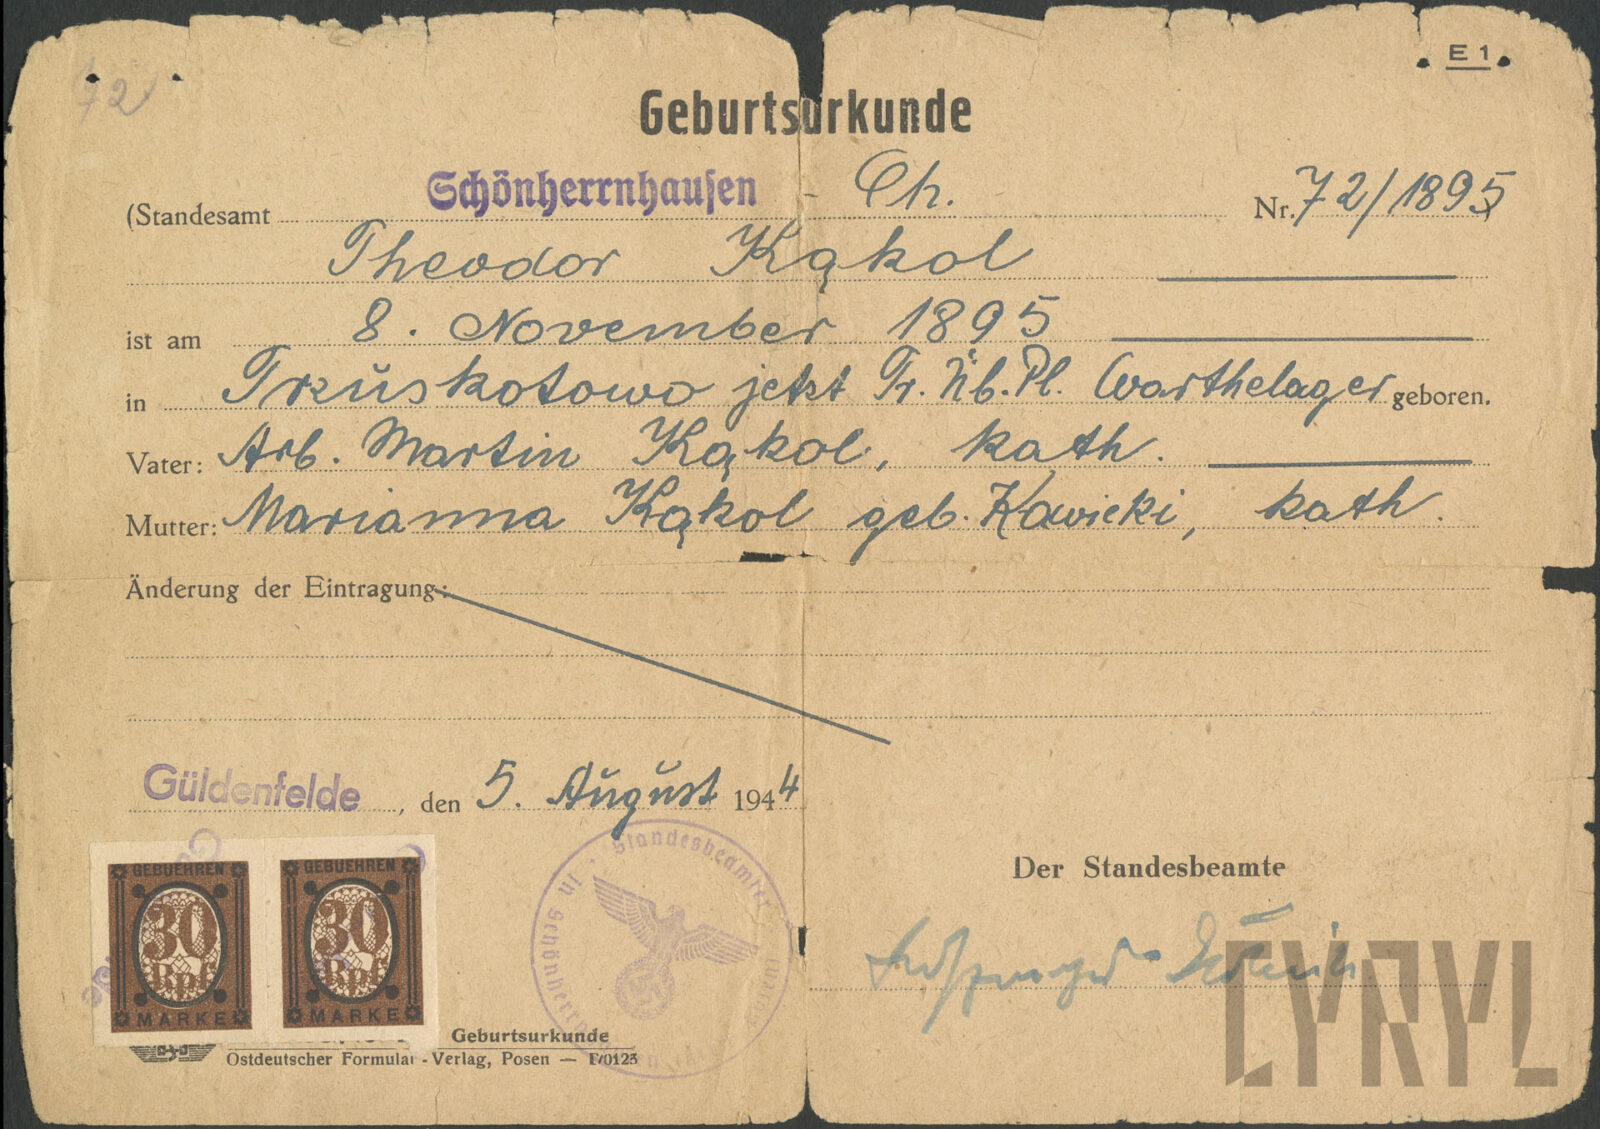 72
E 1
Geburtsurkunde
(Standesamt Schönherrnhausen - Ch. Nr. 72/1895)
Theodor Kąkol
ist am 8. November 1895
in Trzŭskotowo jetzt Tr. Üb. Pl. Warthelager geboren.
Vater: Arb. Martin Kąkol, kath.
Mutter: Marianna Kąkol geb. Kawicki, kath.
Änderung der Eintragung:
Güldenfelde, den 5. Aŭgŭst 1944
Der Standesbeamte
Standesbeamter in Schönherrnhausen
GEBUEHREN GEBUEHREN
30 30
Rpf Rpf
MARKE MARKE
Geburtsurkunde
Ostdeutscher Formular-Verlag, Posen — F/0123
CYRYL